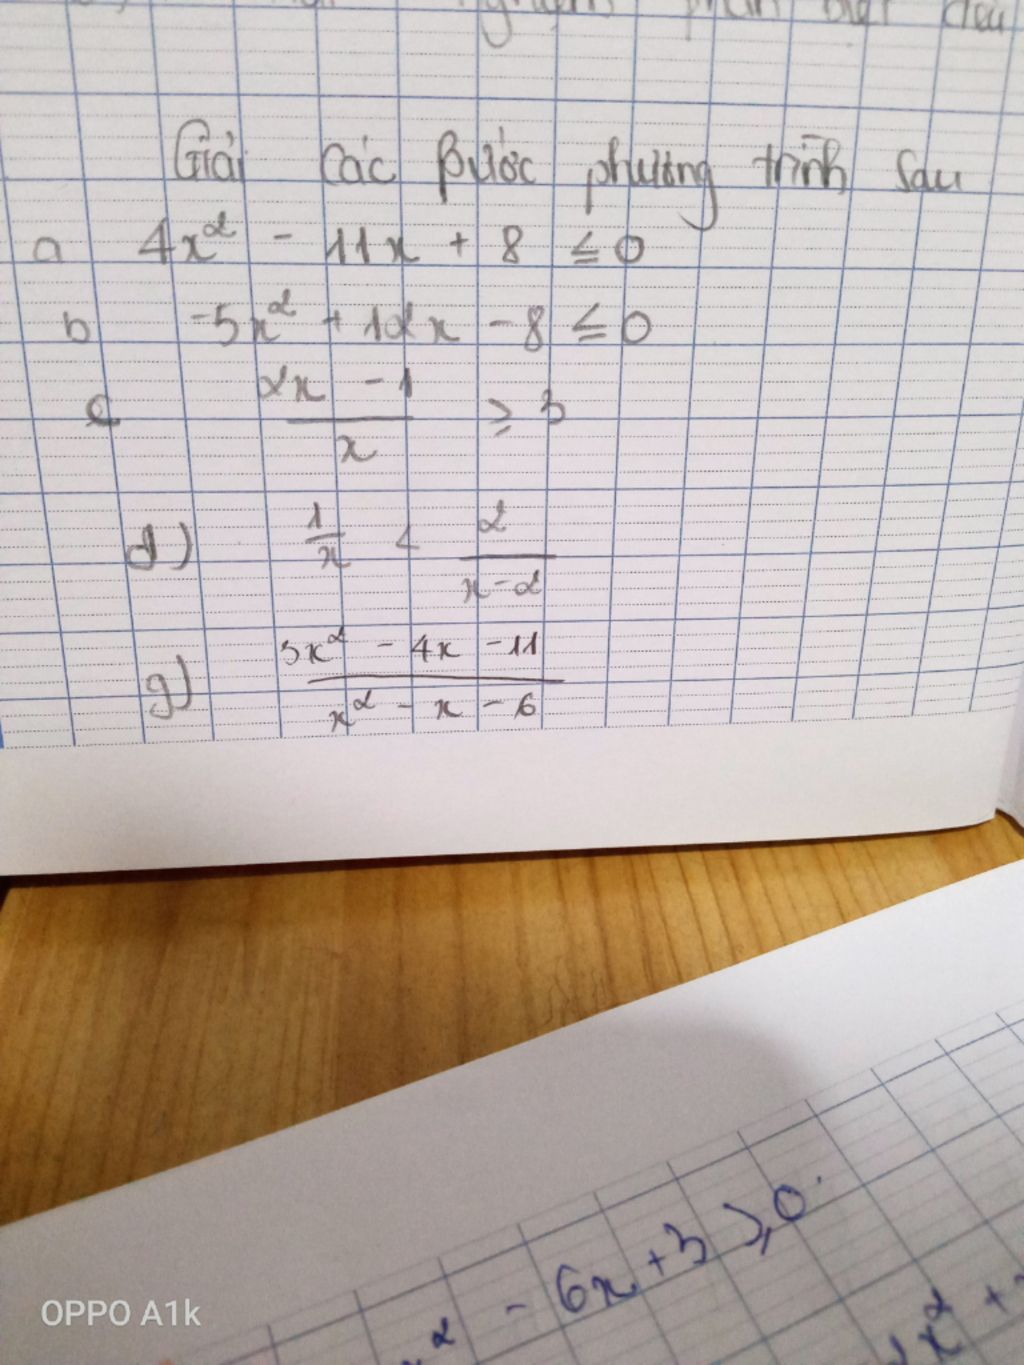 Giải các Bước phương trình sau
a 4x² - 11x + 8 ≤ 0
b -5x² + 12x - 8 ≤ 0
c (2x - 1)/x ≥ 3
d) 1/x < 2/(x-2)
g) (3x² - 4x - 11)/(x² - x - 6)
² - 6x + 3 ≥ 0
x² +
OPPO A1k